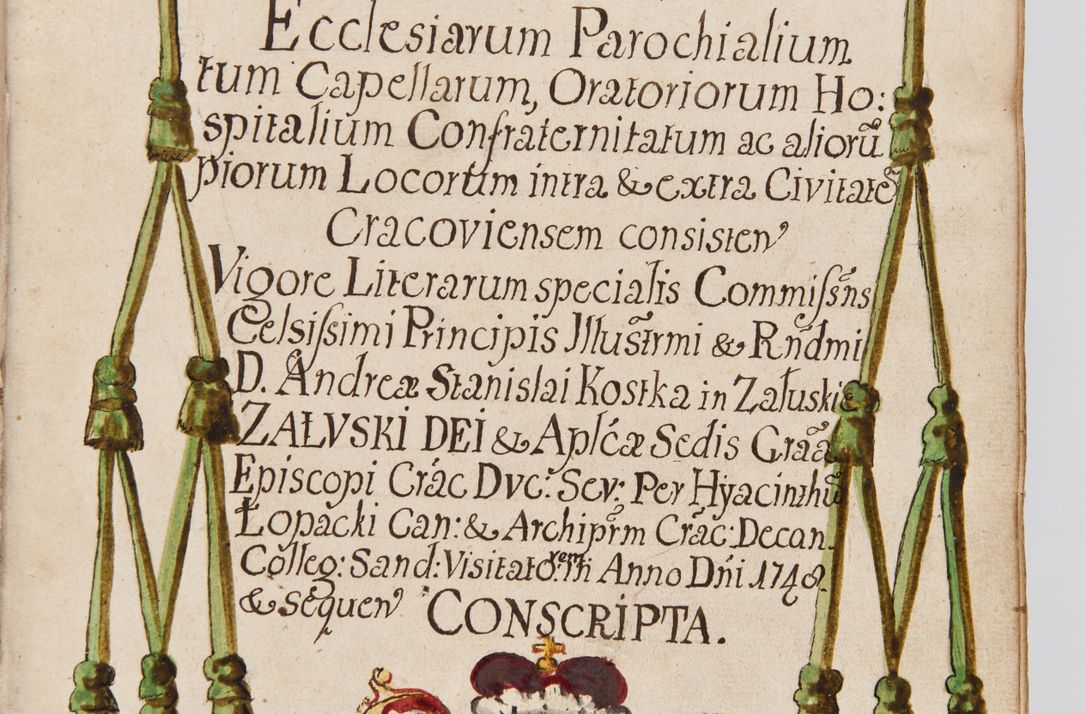 Ecclesiarum Parochialium
tum Capellarum, Oratoriorum Ho:
spitalium Confraternitatum ac aliorũ
piorum Locorum intra & extra Civitatẽ
Cracoviensem consisten
Vigore Literarum specialis Commiſsñs
Celsiſsimi Principis Jllus̃trmi & Rñdmi
D. Andreæ Stanislai Kostka in Załuskie
ZAŁVSKI DEI & Aplćæ Sedis Graã
Episcopi Crác Dvc: Sev: Per Hyacinthũ
Łopacki Can: & Archipr̃m Crác: Decan.
Colleg: Sand: Visitatorem Anno Dñi 1748.
& sequen CONSCRIPTA.